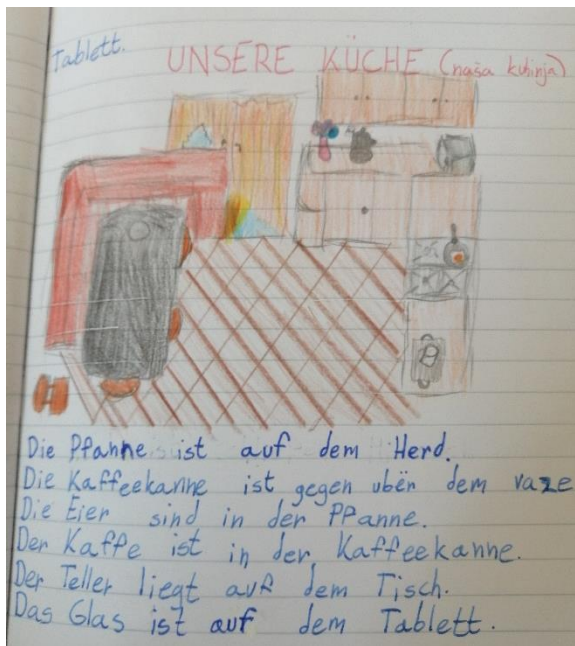 Tablett.
UNSERE KÜCHE (naša kuhinja)
Die Pfanne ist auf dem Herd.
Die Kaffeekanne ist gegen ubër dem vaze
Die Eier sind in der PPanne.
Der Kaffe ist in der Kaffeekanne.
Der Teller liegt auf dem Tisch.
Das Glas ist auf dem Tablett.